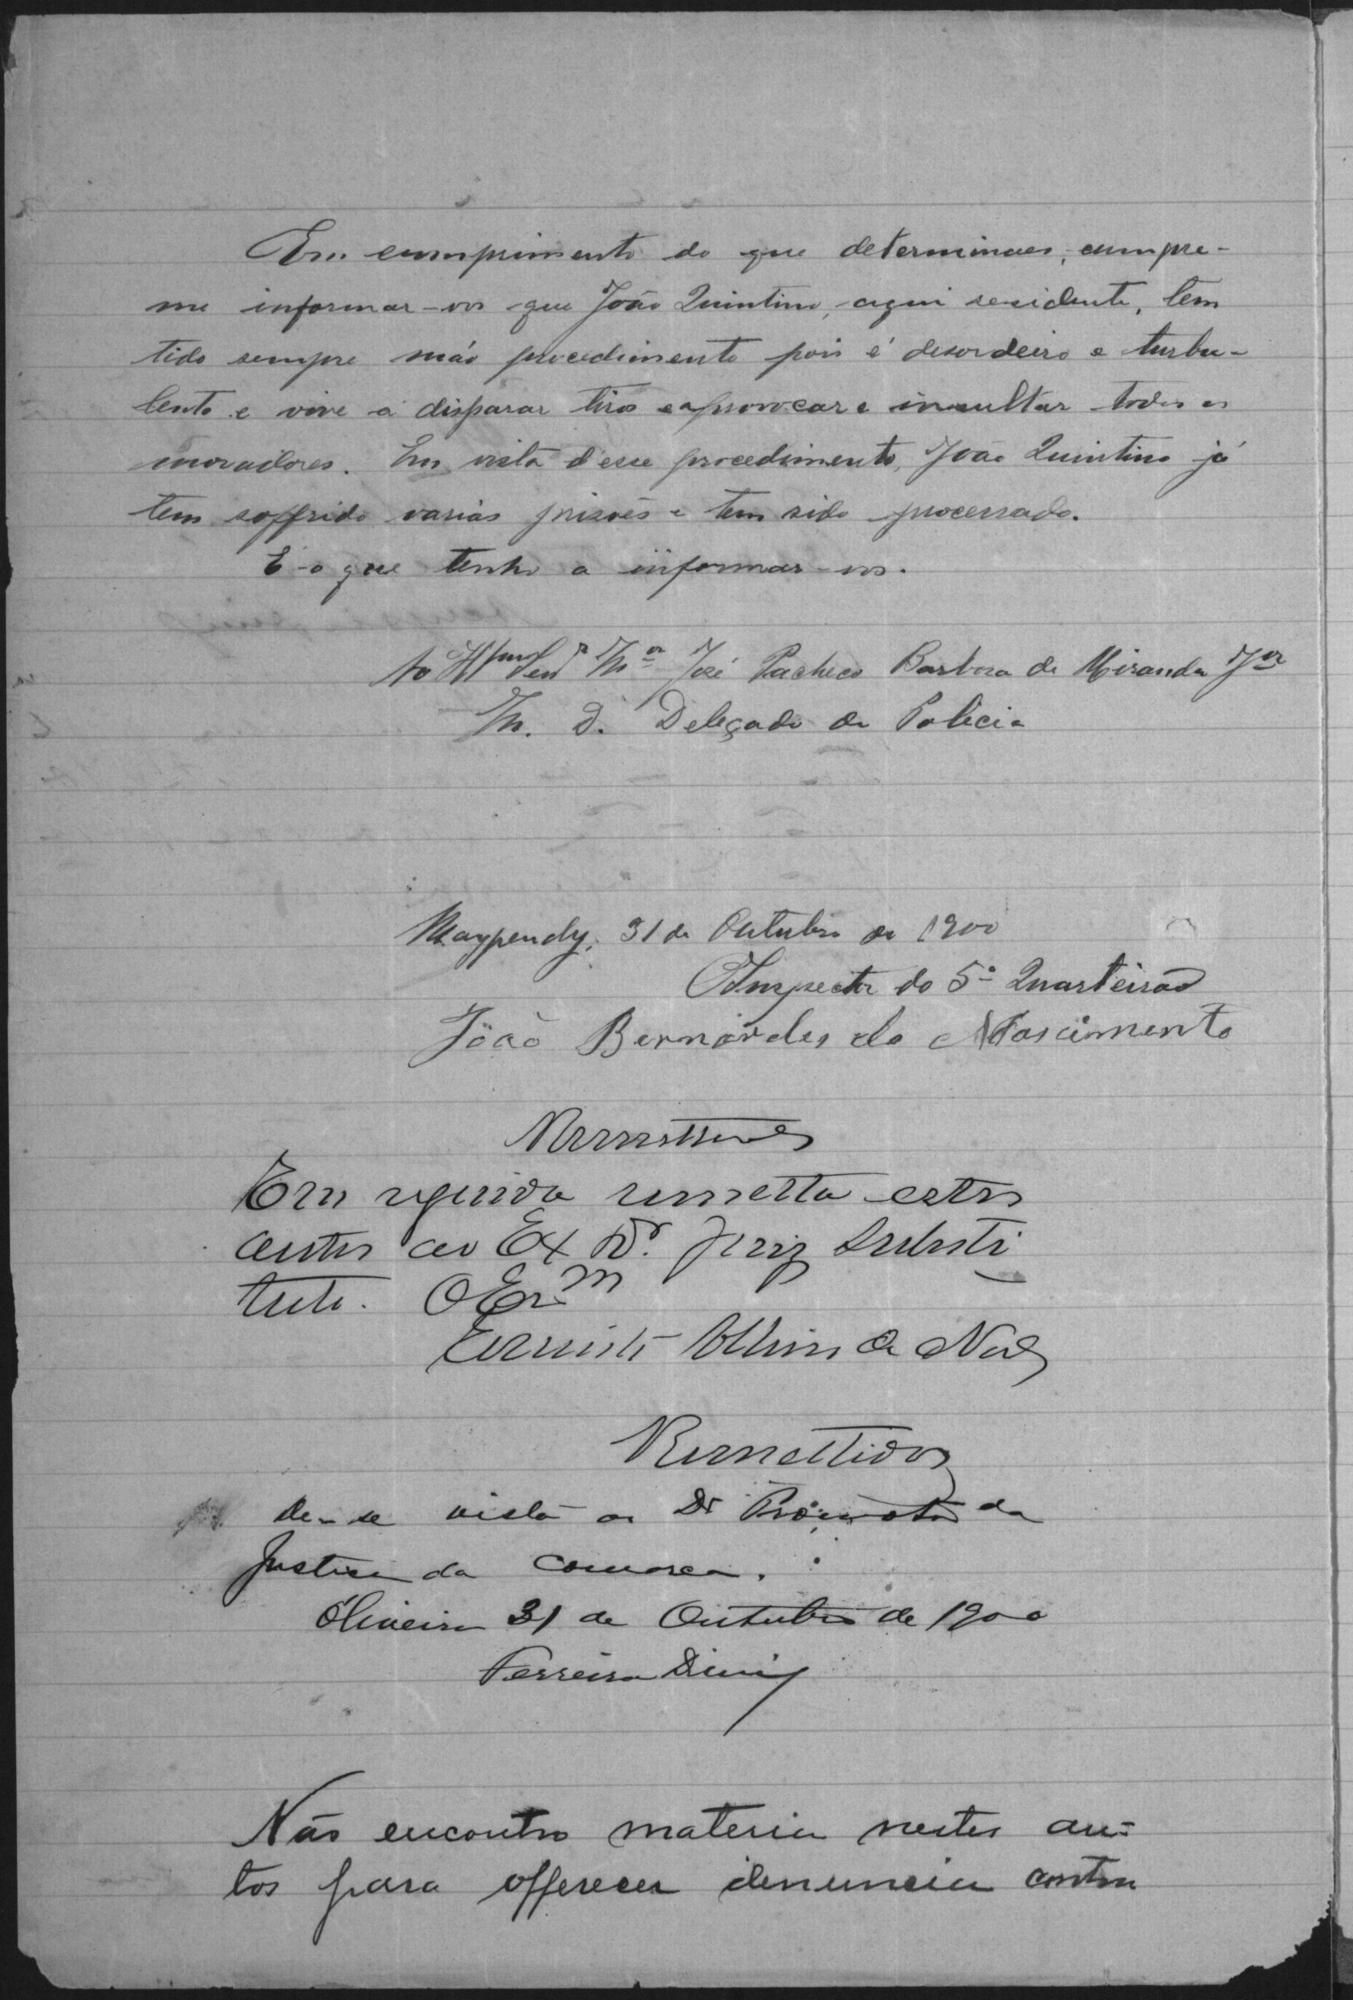 Em cumprimento do que determinaes, cumpre-
me informar-vos que João Quintino, aqui residente, tem
tido sempre máo procedimento pois é desordeiro e turbu-
lento e vive a disparar tiros e a provocar e insultar todos os
moradores. Em vista d'esse procedimento, João Quintino já
tem soffrido varias prisões e tem sido processado.
É o que tenho a informar-vos.
Ao José Pacheco Barboza de Miranda Jor
M. D. Delegado de Policia
31 de Outubro de 1900
O Inspector do 5º Quarteirão
João Bernardes do Nascimento
Em seguida remetto estes
autos ao Ex Dr. Juiz Substi
tuto. O Esm
Remettidos
De-se vista ao Dr Promotor da
Justiça da comarca.
Oliveira 31 de Outubro de 1900
Ferreira Diniz
Não encontro materia nestes au-
tos para offerecer denuncia contra